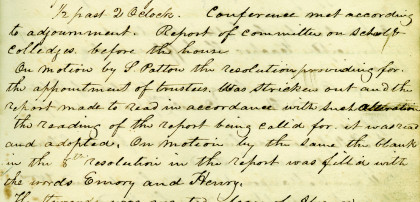 ½ past 2 Oclock. Conference met according
to adjournment. Report of committee on schools &
colledges. before the house
On motion by S. Patton the resolution providing for
the appointment of trustees. Was stricken out and the
report made to read in accordance with such alteration
the reading of the report being call'd for. it was read
and adopted. On motion by the same the blank
in the 8th resolution in the report was fill'd with
the words Emory and Henry.